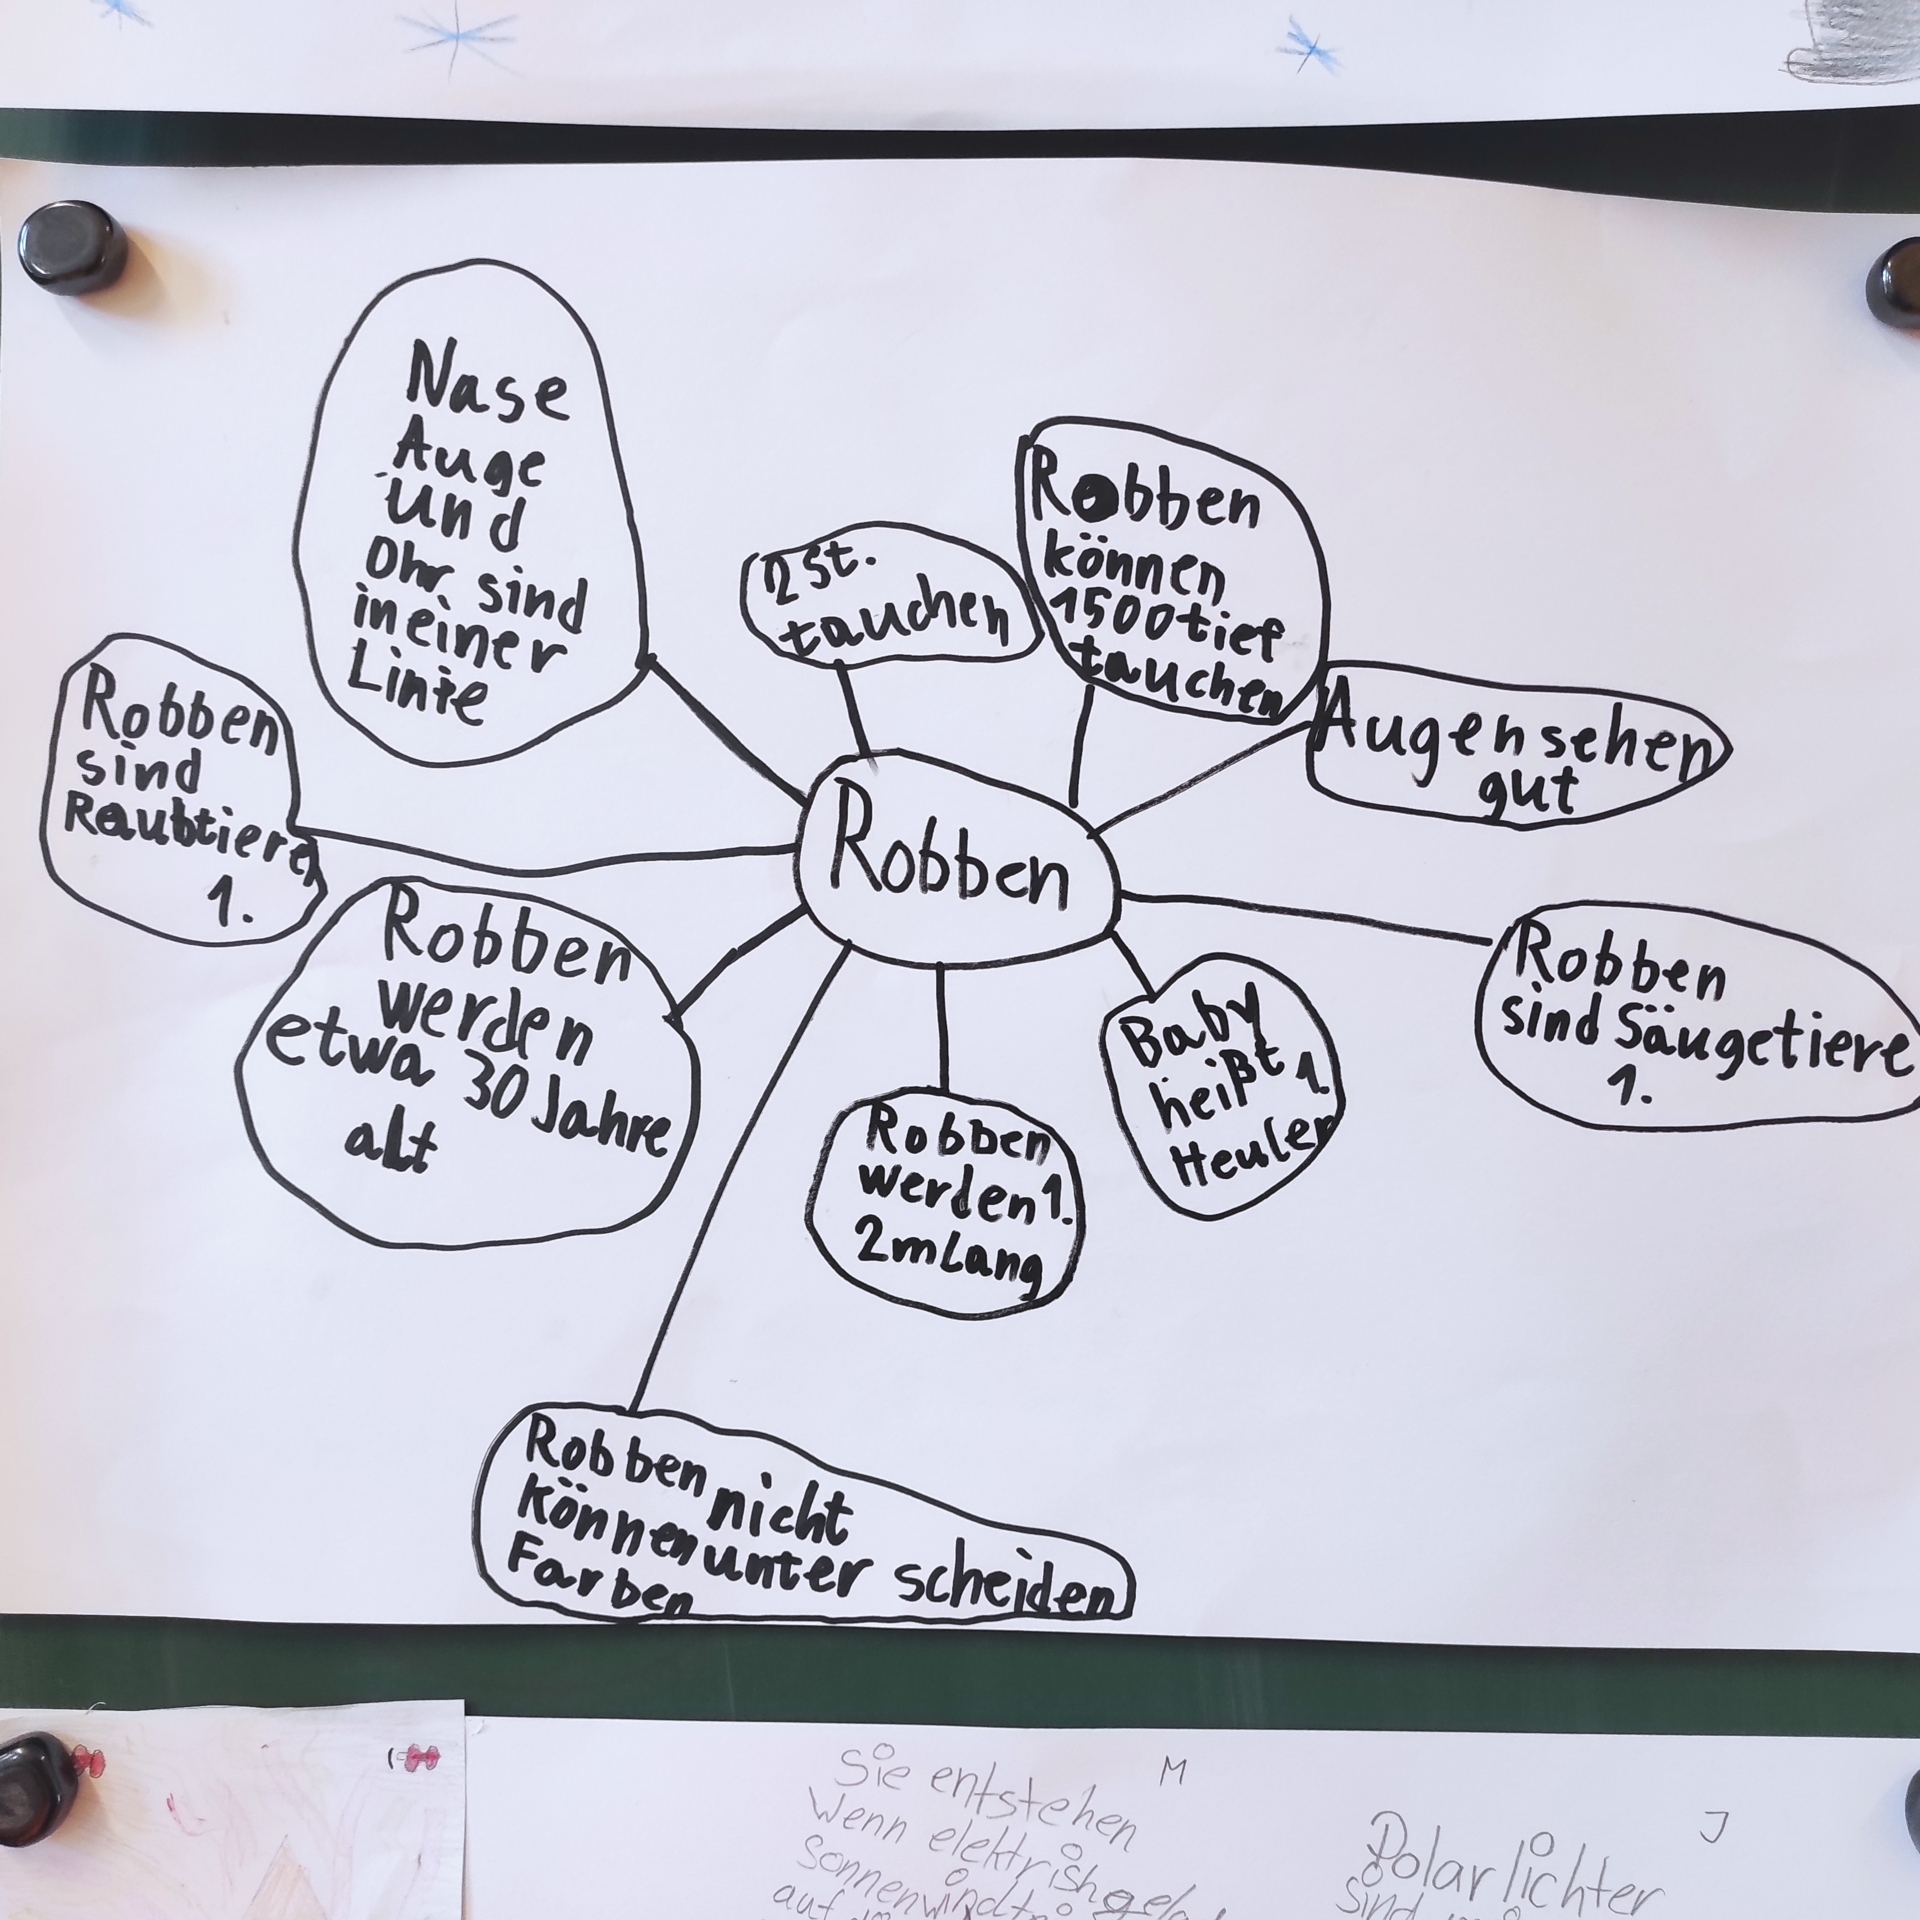 Nase
Auge
und
Ohr sind
in einer
Linie
2 St.
tauchen
Robben
können
1500 tief
tauchen
Augen sehen
gut
Robben
sind
Raubtiere
1.
Robben
Robben
werden
etwa 30 Jahre
alt
Robben
sind Säugetiere
1.
Baby
heißt 1.
Heuler
Robben
werden 1.
2m Lang
Robben nicht
können unter scheiden
Farben
Sie entstehen
Wenn elektrish
Sonnenwind
auf
M
J
Polarlichter
sind